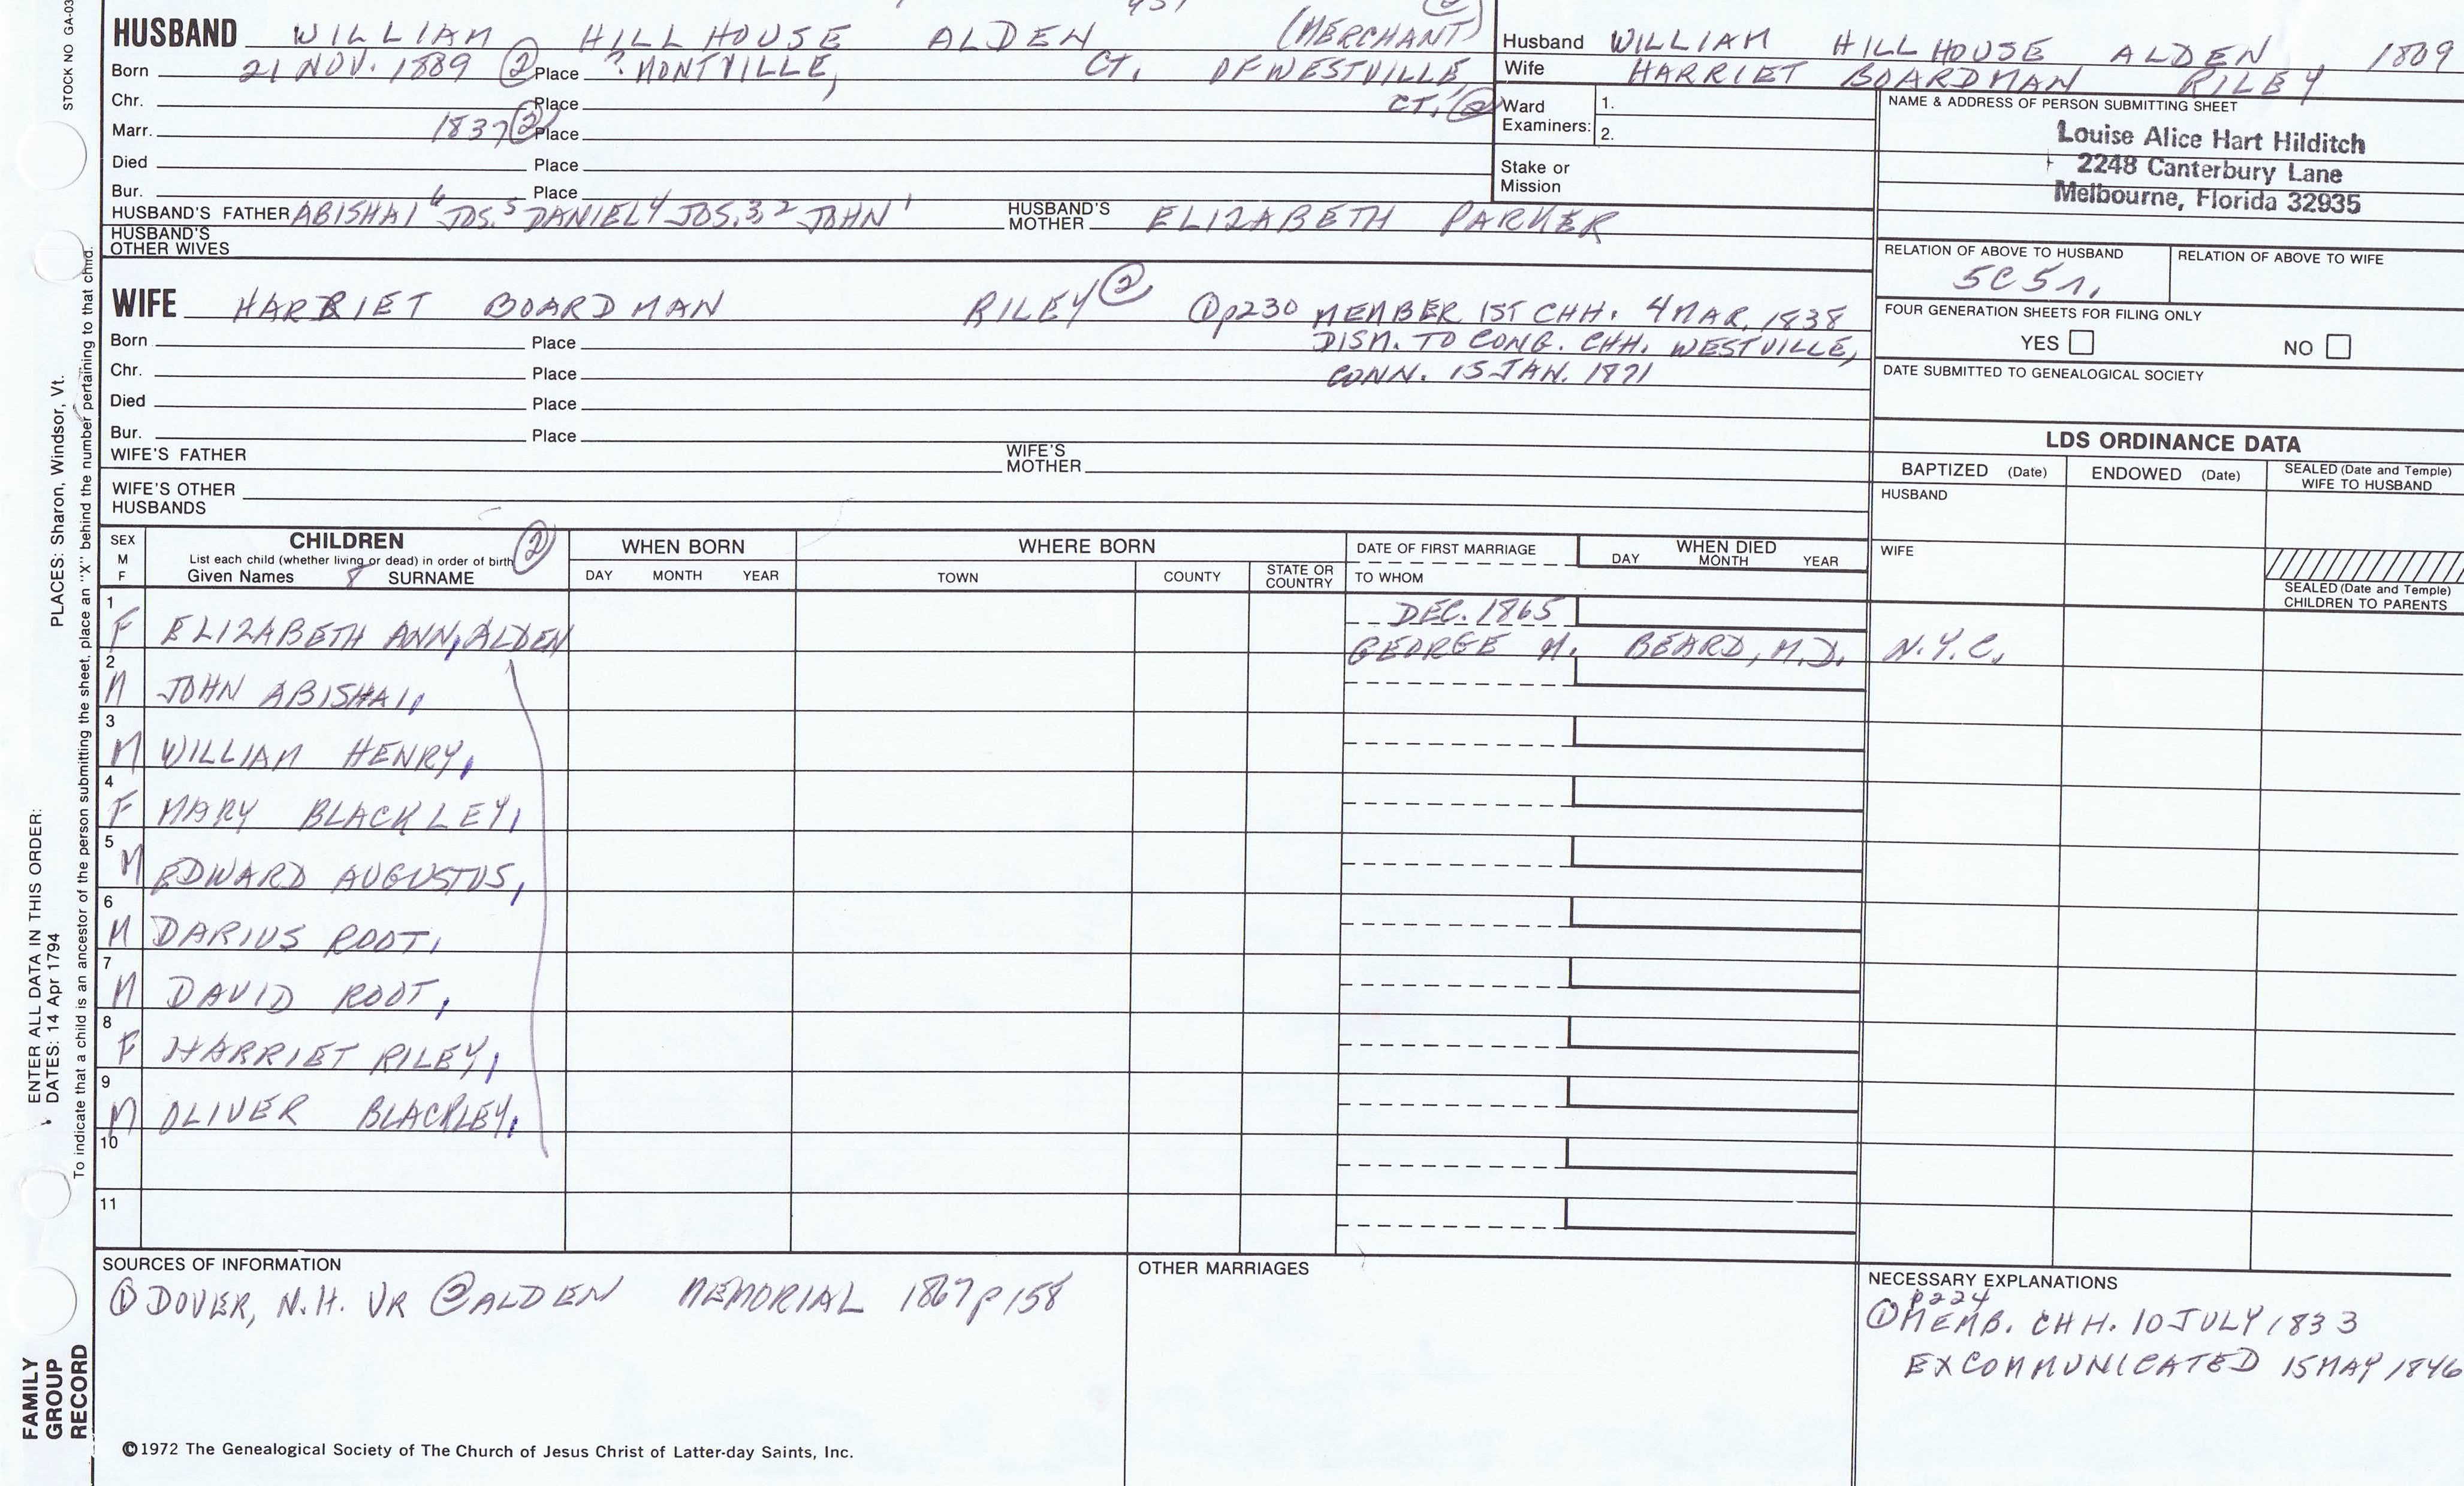 STOCK NO GA-03
HUSBAND WILLIAM HILLHOUSE ALDEN (MERCHANT)
Born 21 NOV. 1889 ② Place ? MONTVILLE, CT. OF WESTVILLE,
Chr. Place CT. ②
Marr. 1837 ② Place
Died Place
Bur. Place
HUSBAND'S FATHER ABISHAI 6 JOS. 5 DANIEL 4 JOS. 3, 2 JOHN 1 HUSBAND'S MOTHER ELIZABETH PARKER
HUSBAND'S OTHER WIVES
Husband WILLIAM HILLHOUSE ALDEN 1809
Wife HARRIET BOARDMAN RILEY
Ward Examiners: 1.
2.
Stake or Mission
NAME & ADDRESS OF PERSON SUBMITTING SHEET
Louise Alice Hart Hilditch
2248 Canterbury Lane
Melbourne, Florida 32935
RELATION OF ABOVE TO HUSBAND RELATION OF ABOVE TO WIFE
FOUR GENERATION SHEETS FOR FILING ONLY
YES NO
DATE SUBMITTED TO GENEALOGICAL SOCIETY
WIFE HARRIET BOARDMAN RILEY ② ① p230 MEMBER 1ST CHH. 4 MAR. 1838
Born Place DISM. TO CONG. CHH. WESTVILLE,
Chr. Place CONN. 15 JAN. 1871
Died Place
Bur. Place
WIFE'S FATHER WIFE'S MOTHER
WIFE'S OTHER HUSBANDS
LDS ORDINANCE DATA
BAPTIZED (Date) ENDOWED (Date) SEALED (Date and Temple) WIFE TO HUSBAND
HUSBAND
WIFE
SEALED (Date and Temple) CHILDREN TO PARENTS
SEX M F CHILDREN ② WHEN BORN WHERE BORN DATE OF FIRST MARRIAGE WHEN DIED
List each child (whether living or dead) in order of birth
Given Names 8 SURNAME DAY MONTH YEAR TOWN COUNTY STATE OR COUNTRY TO WHOM DAY MONTH YEAR
1 F ELIZABETH ANN, ALDEN DEC. 1865
GEORGE M. BEARD, M.D. N.Y.C.
2 M JOHN ABISHAI,
3 M WILLIAM HENRY,
4 F MARY BLACKLEY,
5 M EDWARD AUGUSTUS,
6 M DARIUS ROOT,
7 M DAVID ROOT,
8 F HARRIET RILEY,
9 M OLIVER BLACKLEY,
10
11
SOURCES OF INFORMATION
① DOVER, N.H. VR ② ALDEN MEMORIAL 1867 p 158
OTHER MARRIAGES
NECESSARY EXPLANATIONS
p224
① MEMB. CHH. 10 JULY 1833
EXCOMMUNICATED 15 MAY 1846
©1972 The Genealogical Society of The Church of Jesus Christ of Latter-day Saints, Inc.
ENTER ALL DATA IN THIS ORDER:
DATES: 14 Apr 1794
PLACES: Sharon, Windsor, Vt.
To indicate that a child is an ancestor of the person submitting the sheet, place an "X" behind the number pertaining to that child.
FAMILY
GROUP
RECORD